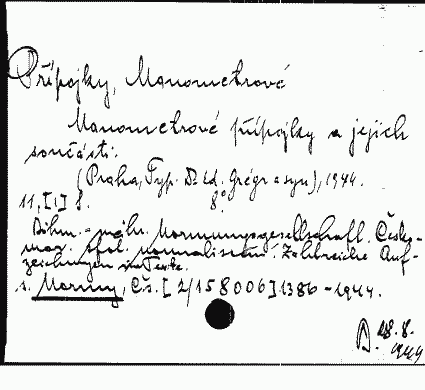 Přípojky, Manometrové
Manometrové přípojky a jejich
součásti.
(Praha, Typ. Dr. Ed. Grégr a syn), 1944.
11, [1] S. 8°.
Böhm.-mähr. Normungsgesellschaft. Česko-
mor. spol. normalisační. Zahlreiche Auf-
zeichungen im Texte.
s. Normy, Čís. [2/158006] 1386-1944.
28.8.
1944